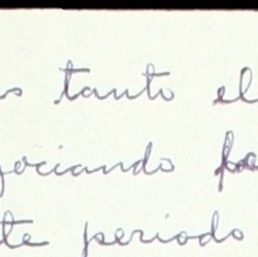 s tanto el
gociando pa
te periodo